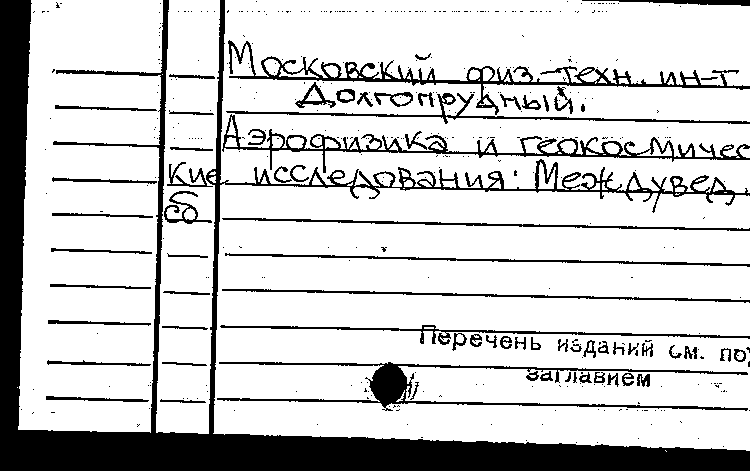 Московский физ.-техн. ин-т
Долгопрудный.
Аэрофизика и геокосмичес
кие исследования: Междувед.
сб
Перечень изданий см. под
заглавием